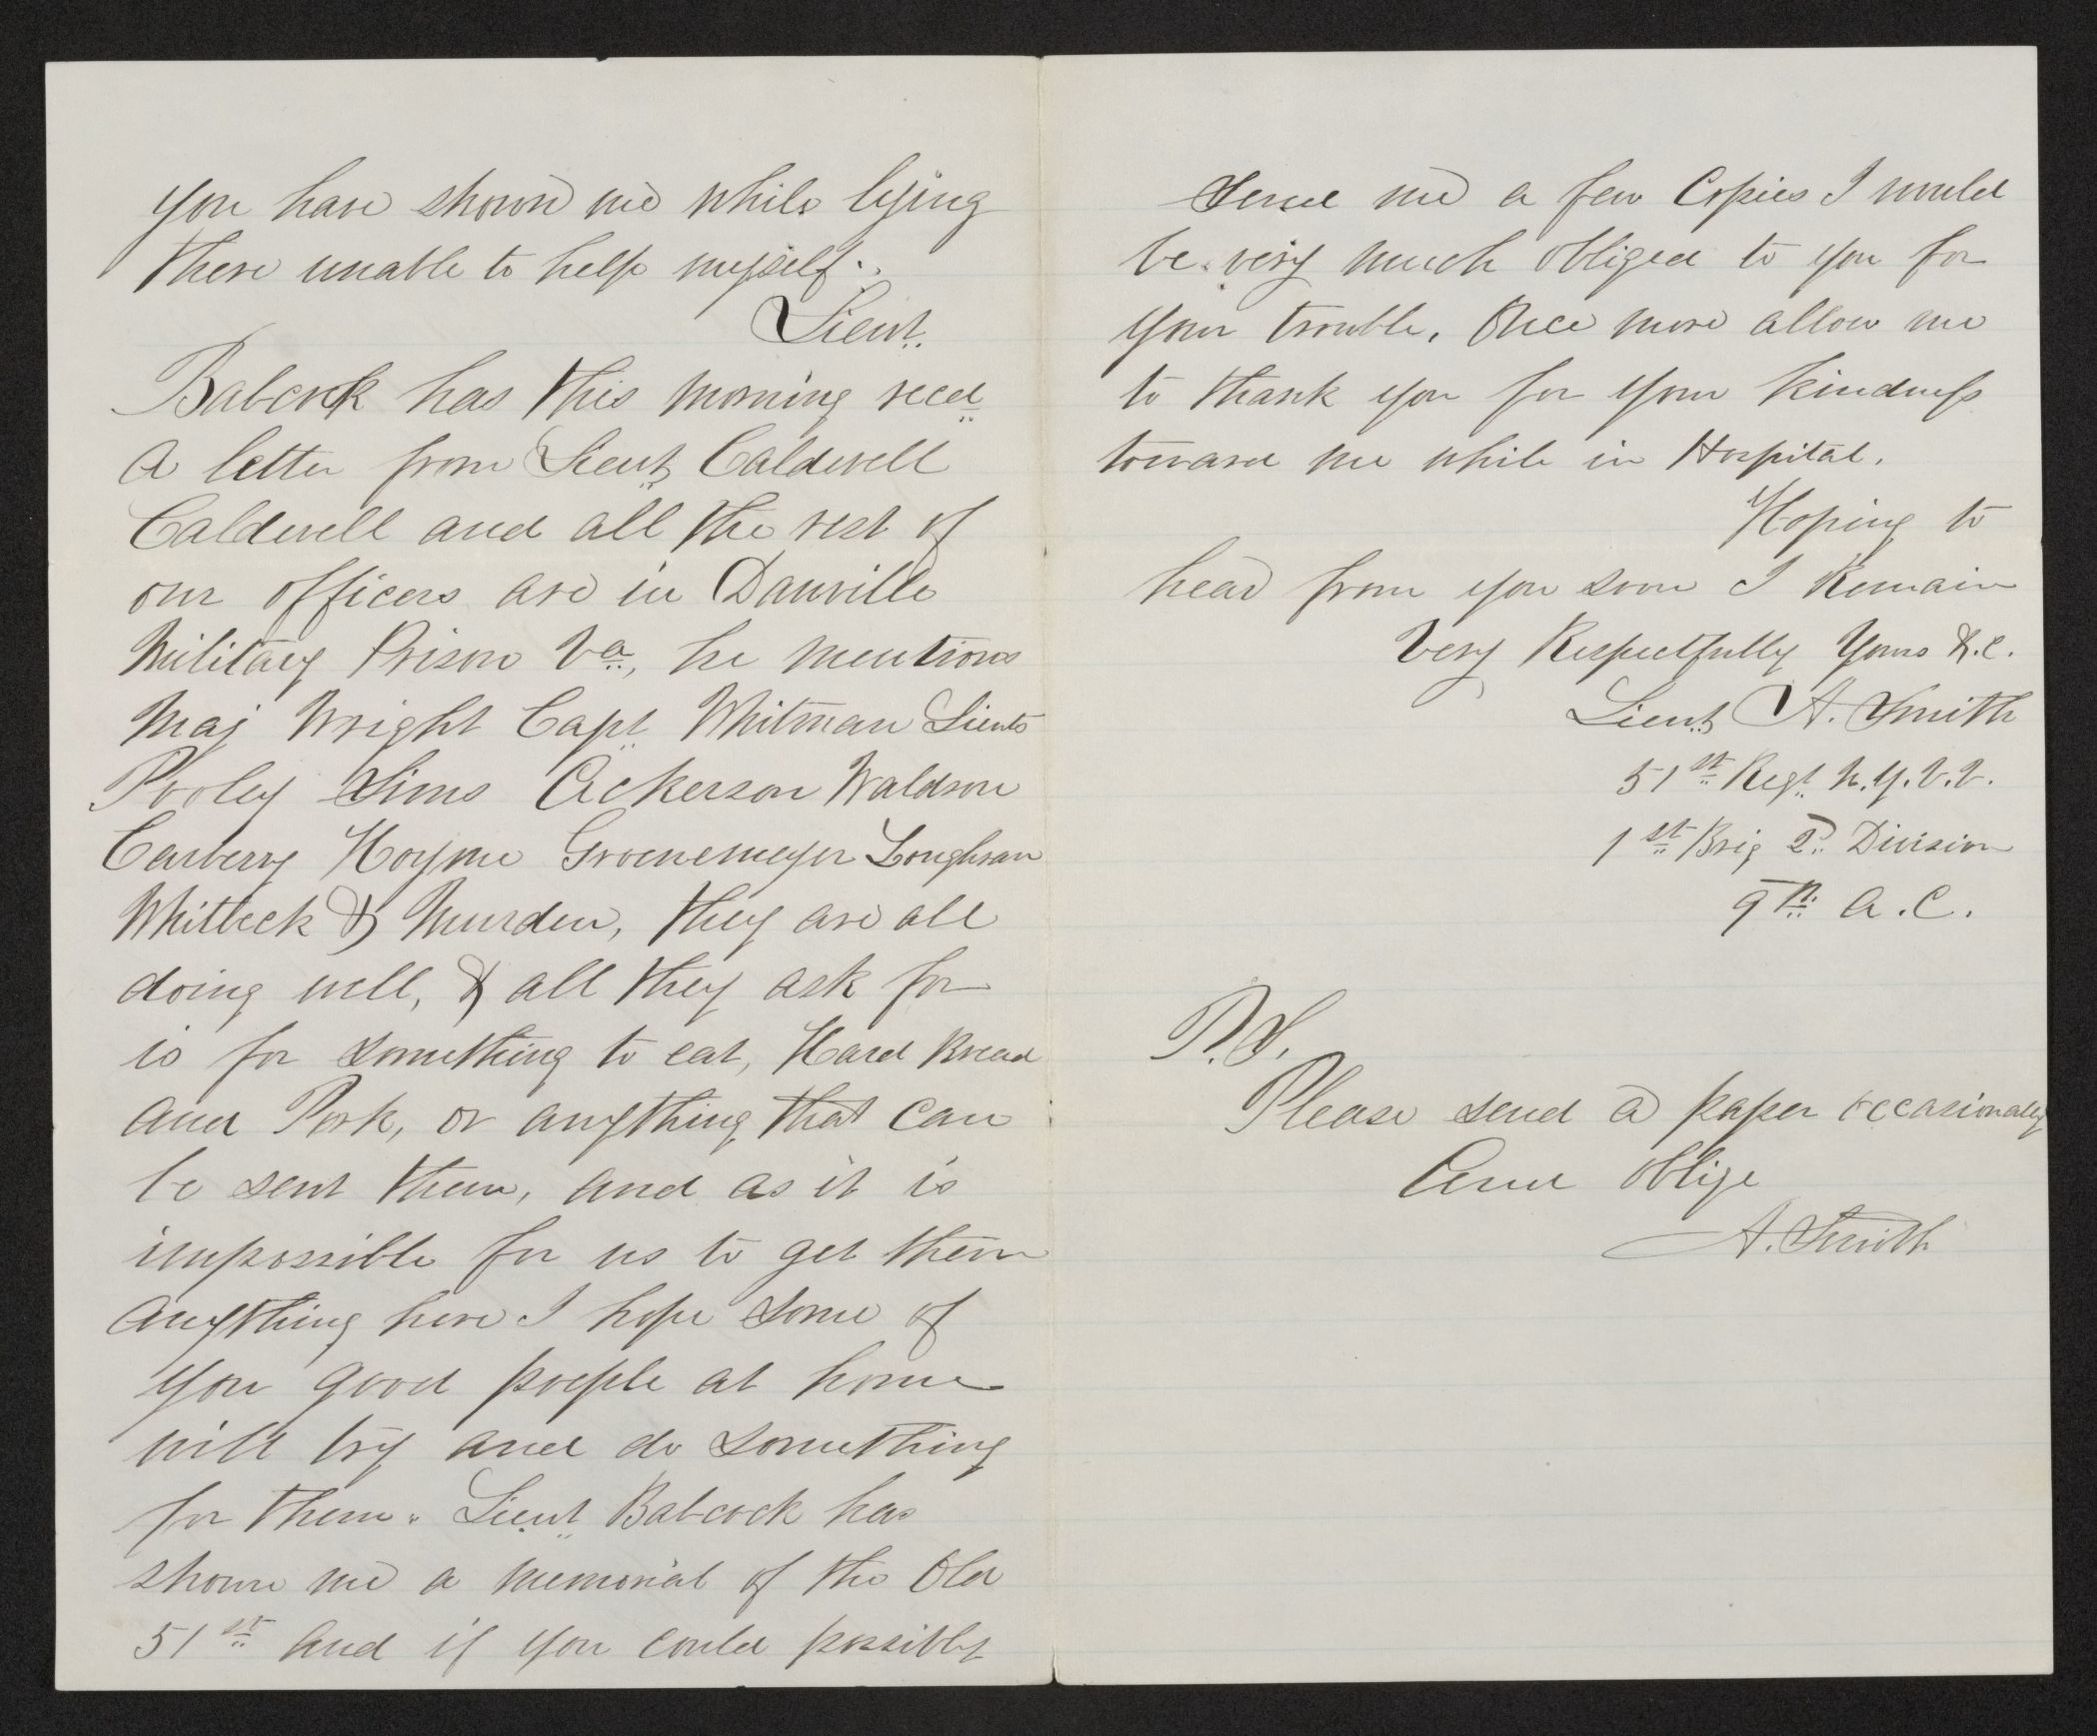 you have shown me while lying
there unable to help myself.
Lieut.
Babcock has this morning recd
a letter from Lieut Caldwell
Caldwell and all the rest of
our officers are in Danville
Military Prison Va, he mentions
Maj Wright Capt Whitman Lieuts
Pooley Sims Ackerson Waldron
Carberry Hoyme Groenemeyer Loughran
Whitbeck & Murden, they are all
doing well, & all they ask for
is for something to eat, Hard Bread
and Pork, or anything that can
be sent them, and as it is
impossible for us to get them
anything here I hope some of
you good poeple at home
will try and do something
for them. Lieut Babcock has
shown me a memorial of the Old
51st and if you could possibly
send me a few Copies I would
be very much obliged to you for
your trouble, Once more allow me
to thank you for your kindness
toward me while in Hospital.
Hoping to
hear from you soon I Remain
Very Respectfully Yours &.c.
Lieut A. Smith
51st Regt N.Y.V.V.
1st Brig 2d Division
9th A.C.
P.S.
Please send a paper occasionaly
And oblige
A. Smith